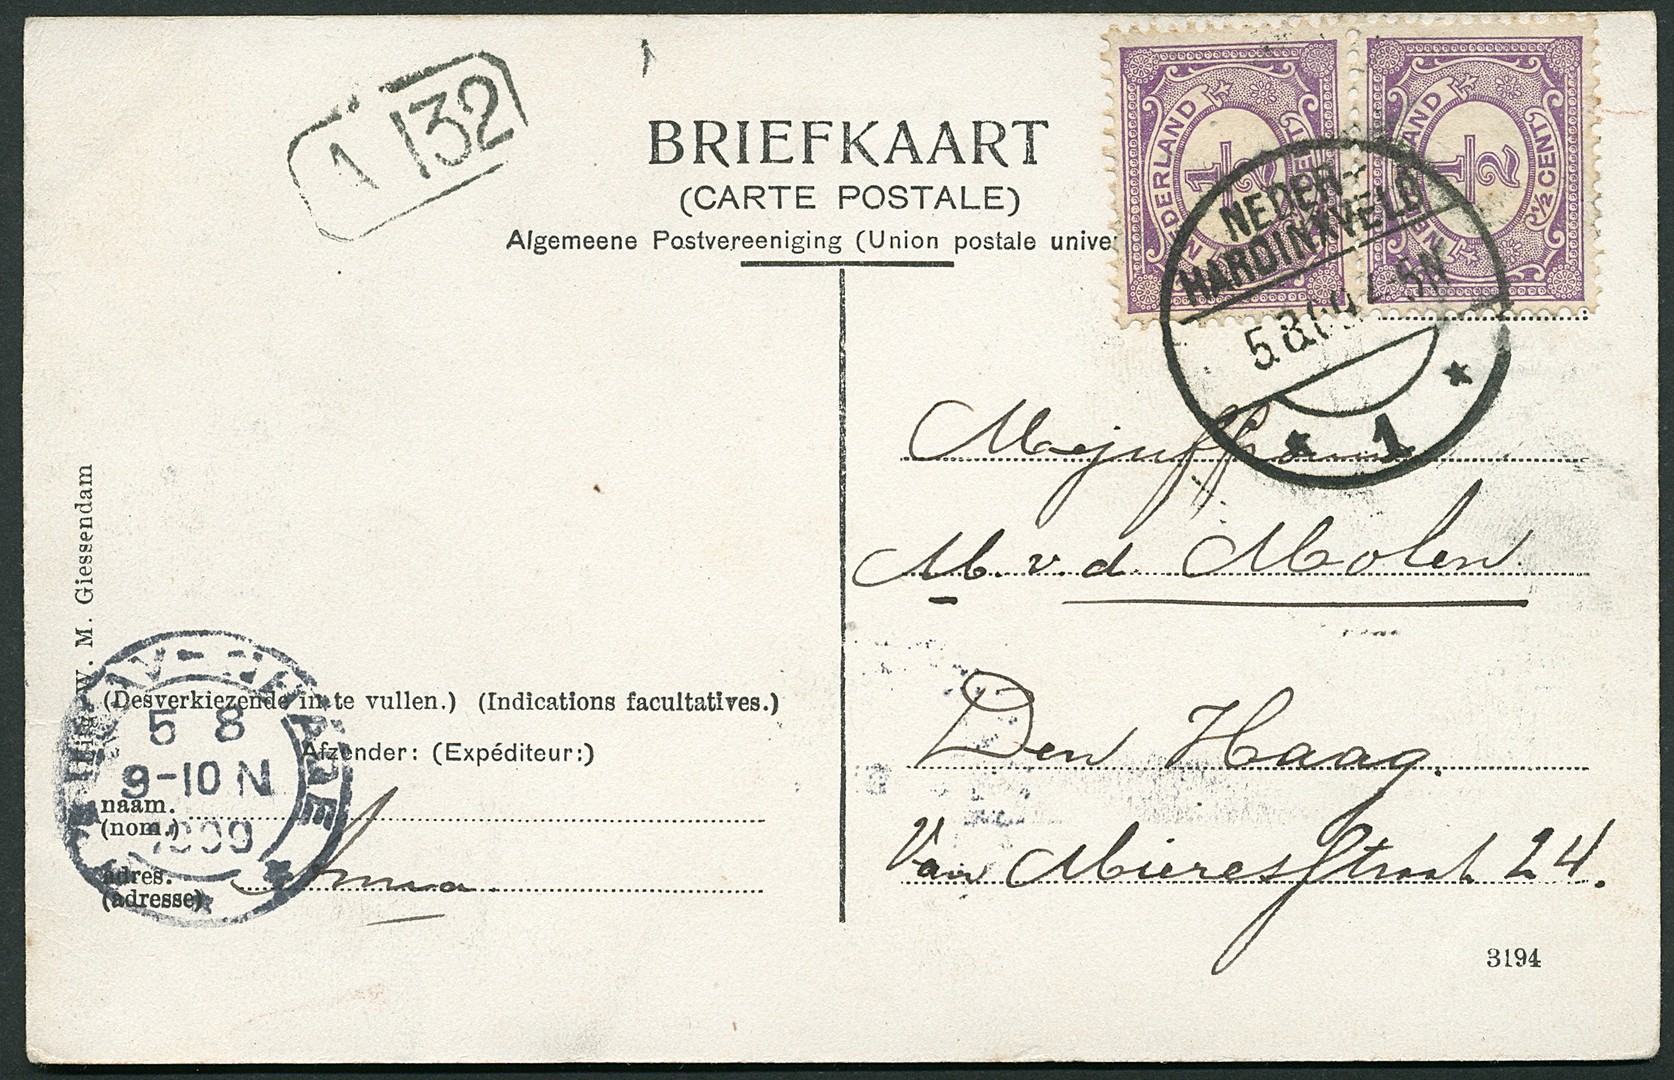 A 132
BRIEFKAART
(CARTE POSTALE)
Algemeene Postvereeniging (Union postale unive
NEDERLAND
1/2
CENT
1/2
1/2 CENT
NEDER-
HARDINXVELD
5.8.09 4-5N
1
Mejuffrouw
M. v. d. Molen
Den Haag.
Van Mieresstraat 24.
3194
W. M. Giessendam
(Desverkiezende in te vullen.) (Indications facultatives.)
Afzender: (Expéditeur:)
naam.
(nom.)
adres.
(adresse)
Anna.
'S-GRAVENHAGE
5 8
9-10 N
1909